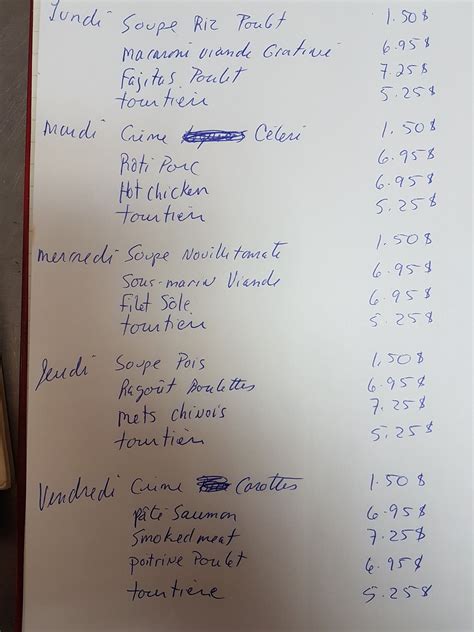 Lundi Soupe Riz Poulet 1.50$
macaroni viande Gratiné 6.95$
Fajitas Poulet 7.25$
tourtière 5.25$
mardi Crème Céleri 1.50$
Rôti Porc 6.95$
Hot chicken 6.95$
tourtière 5.25$
mercredi Soupe Nouille tomate 1.50$
Sous-marin Viande 6.95$
Filet Sôle 6.95$
tourtière 5.25$
Jeudi Soupe Pois 1.50$
Ragoût Boulettes 6.95$
mets chinois 7.25$
tourtière 5.25$
Vendredi Crème Carottes 1.50$
pâté Saumon 6.95$
Smoked meat 7.25$
poitrine Poulet 6.95$
tourtière 5.25$